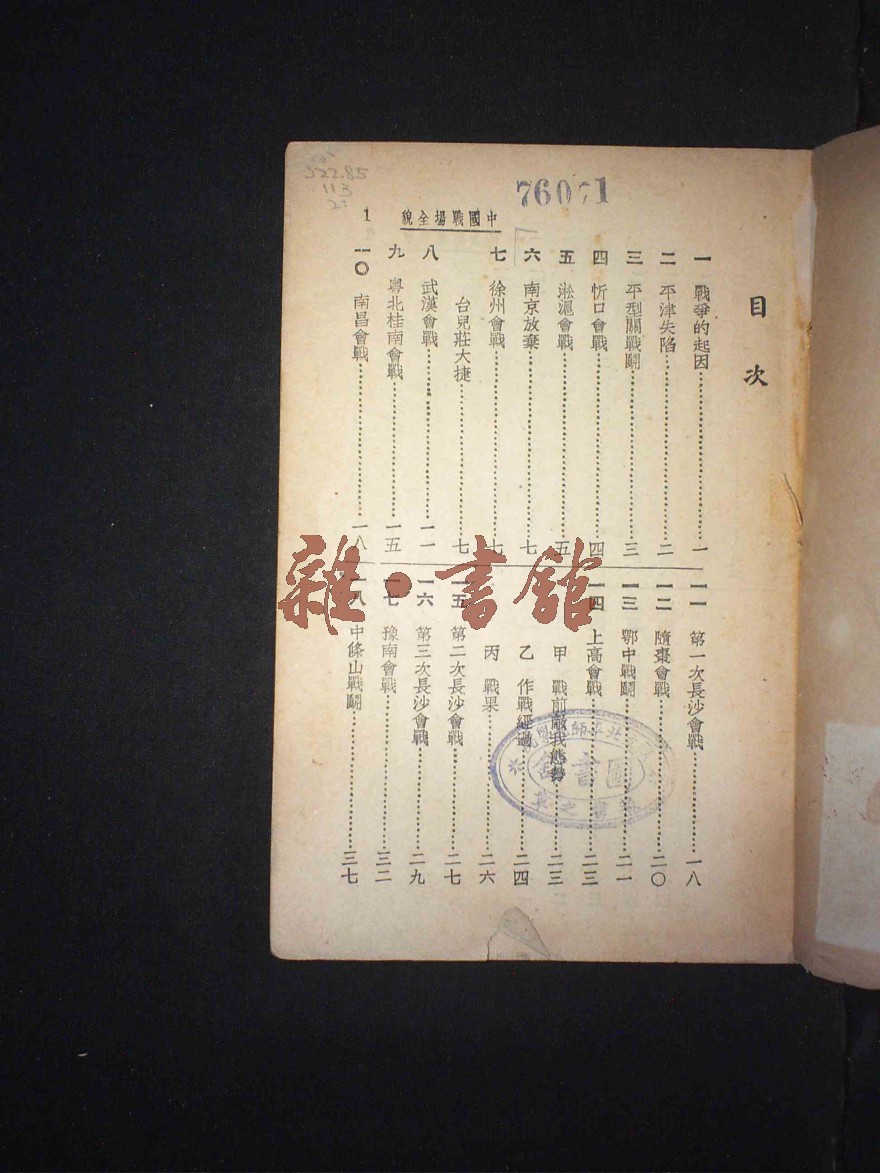 322.85
113
76071
中國戰場全貌
1
目次
一 戰爭的起因……一
二 平津失陷……二
三 平型關戰鬪……三
四 忻口會戰……四
五 淞滬會戰……五
六 南京放棄……七
七 徐州會戰……七
台兒莊大捷……七
八 武漢會戰……一一
九 粵北桂南會戰……一五
一〇 南昌會戰……一八
一一 第一次長沙會戰……一八
一二 隨棗會戰……二〇
一三 鄂中戰鬪……二一
一四 上高會戰……二三
甲 戰前敵我態勢……二三
乙 作戰經過……二四
丙 戰果……二六
一五 第二次長沙會戰……二七
一六 第三次長沙會戰……二九
一七 豫南會戰……三二
一八 中條山戰鬪……三七
雜·書館
圖書館